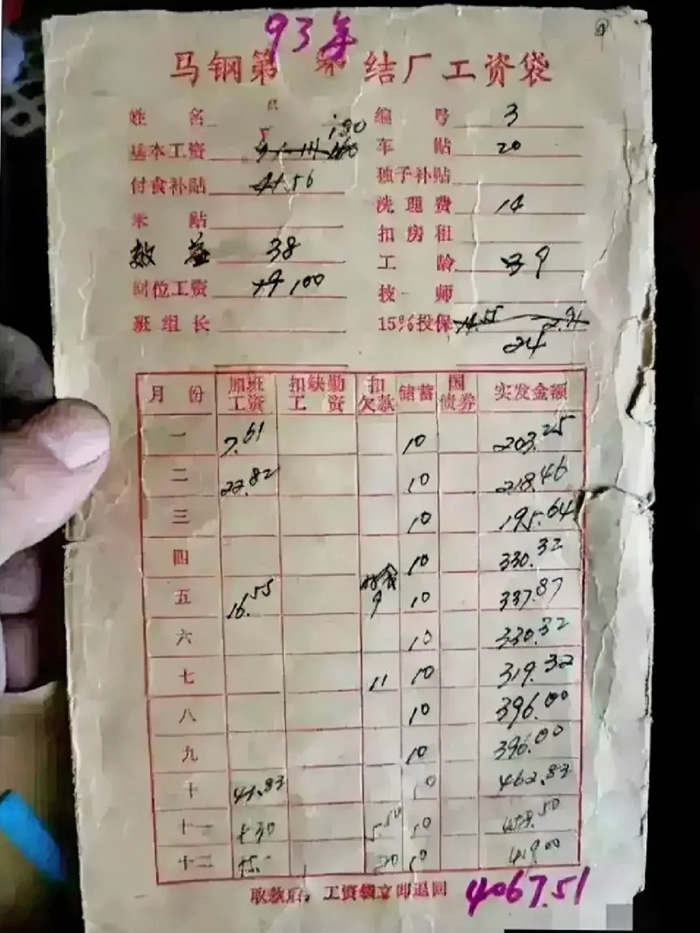 93年
马钢第 结厂工资袋
姓名 编号 3
基本工资 车贴 20
付食补贴 41.56 独子补贴
米贴 洗理费 14
效益 38 扣房租
岗位工资 100 工龄 39
班组长 技师
15%投保 14.55 2.91
24
月份 加班工资 扣缺勤工资 扣欠款 储蓄 国债券 实发金额
一 7.61 10 203.25
二 22.82 10 218.46
三 10 195.64
四 10 330.32
五 16.55 9 10 337.87
六 10 330.32
七 11 10 319.32
八 10 396.00
九 10 396.00
十 10 462.83
十一 10
十二 20 10 419.00
取款后，工资袋立即退回 4067.51